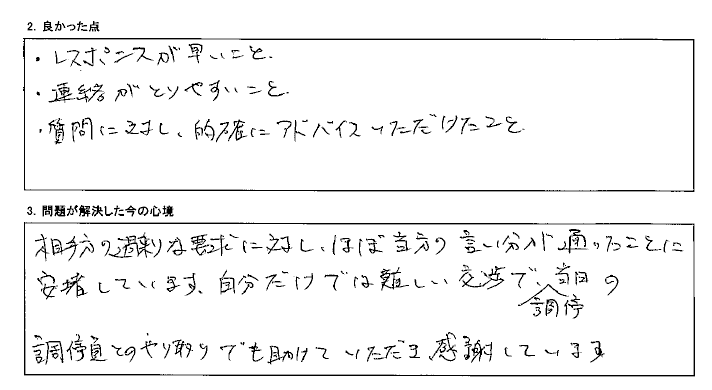 2. 良かった点
・レスポンスが早いこと.
・連絡がとりやすいこと.
・質問に対し、的確にアドバイスいただけたこと
3. 問題が解決した今の心境
相手方の過剰な要求に対し、ほぼ当方の言い分が通ったことに
安堵しています、自分だけでは難しい交渉で、当日の
調停
調停員とのやり取りでも助けていただき感謝しています